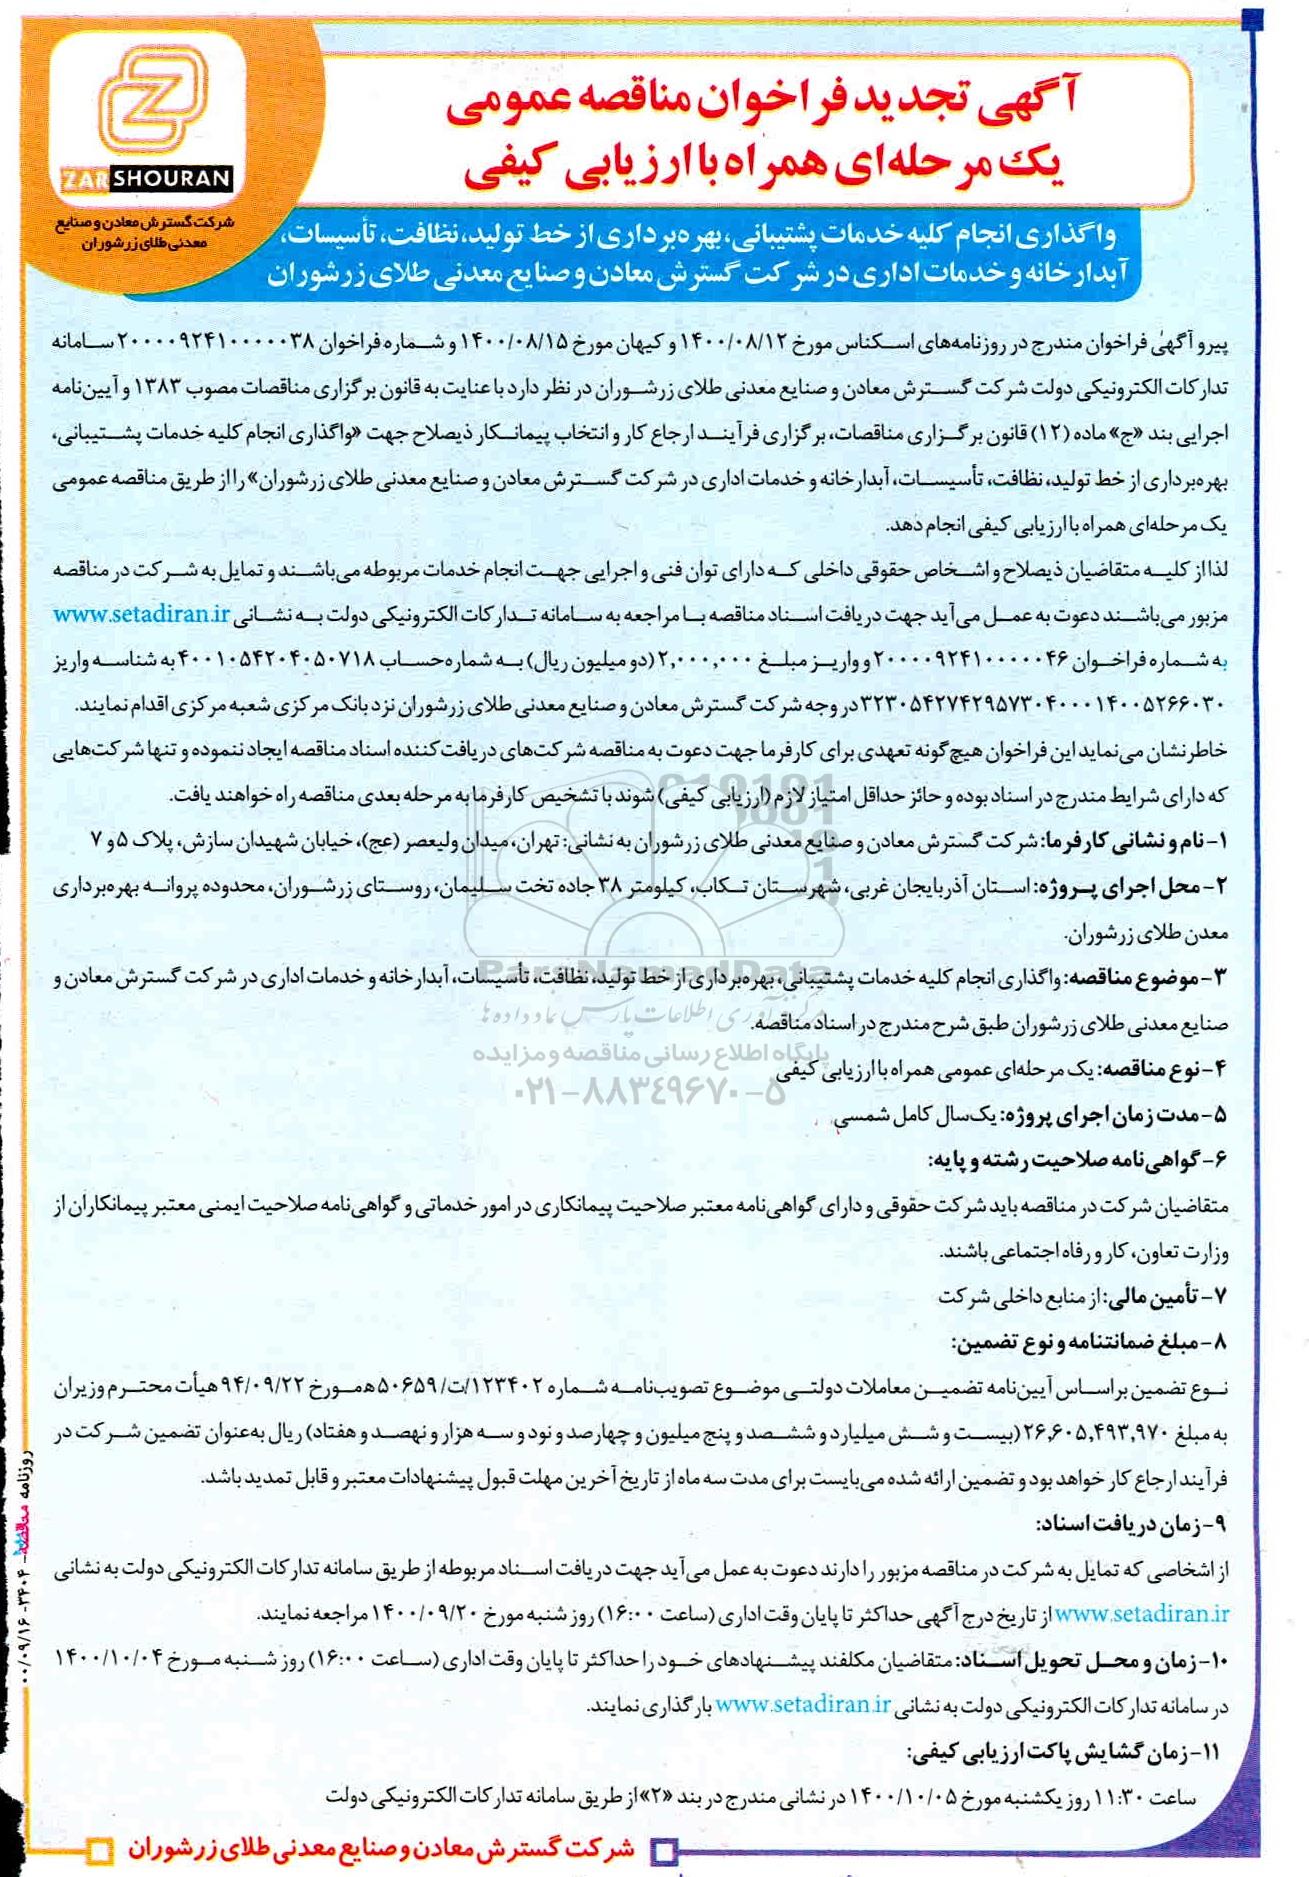 آگهی تجدید فراخوان مناقصه عمومی
یک مرحله‌ای همراه با ارزیابی کیفی
ZARSHOURAN
شرکت گسترش معادن و صنایع
معدنی طلای زرشوران
واگذاری انجام کلیه خدمات پشتیبانی، بهره‌برداری از خط تولید، نظافت، تأسیسات،
آبدارخانه و خدمات اداری در شرکت گسترش معادن و صنایع معدنی طلای زرشوران
پیرو آگهی فراخوان مندرج در روزنامه‌های اسکناس مورخ ۱۴۰۰/۰۸/۱۲ و کیهان مورخ ۱۴۰۰/۰۸/۱۵ و شماره فراخوان ۲۰۰۰۰۹۲۴۱۰۰۰۰۰۳۸ سامانه
تدارکات الکترونیکی دولت شرکت گسترش معادن و صنایع معدنی طلای زرشوران در نظر دارد با عنایت به قانون برگزاری مناقصات مصوب ۱۳۸۳ و آیین‌نامه
اجرایی بند «ج» ماده (۱۲) قانون برگزاری مناقصات، برگزاری فرآیند ارجاع کار و انتخاب پیمانکار ذیصلاح جهت «واگذاری انجام کلیه خدمات پشتیبانی،
بهره‌برداری از خط تولید، نظافت، تأسیسات، آبدارخانه و خدمات اداری در شرکت گسترش معادن و صنایع معدنی طلای زرشوران» را از طریق مناقصه عمومی
یک مرحله‌ای همراه با ارزیابی کیفی انجام دهد.
لذا از کلیه متقاضیان ذیصلاح و اشخاص حقوقی داخلی که دارای توان فنی و اجرایی جهت انجام خدمات مربوطه می‌باشند و تمایل به شرکت در مناقصه
مزبور می‌باشند دعوت به عمل می‌آید جهت دریافت اسناد مناقصه با مراجعه به سامانه تدارکات الکترونیکی دولت به نشانی www.setadiran.ir
به شماره فراخوان ۲۰۰۰۰۹۲۴۱۰۰۰۰۰۴۶ و واریز مبلغ ۲,۰۰۰,۰۰۰ (دو میلیون ریال) به شماره حساب ۴۰۰۱۰۵۴۲۰۴۰۵۰۷۱۸ به شناسه واریز
۳۲۳۰۵۴۲۷۴۲۹۵۷۳۰۴۰۰۰۱۴۰۰۵۲۶۶۰۳۰ در وجه شرکت گسترش معادن و صنایع معدنی طلای زرشوران نزد بانک مرکزی شعبه مرکزی اقدام نمایند.
خاطرنشان می‌نماید این فراخوان هیچ‌گونه تعهدی برای کارفرما جهت دعوت به مناقصه شرکت‌های دریافت‌کننده اسناد مناقصه ایجاد ننموده و تنها شرکت‌هایی
که دارای شرایط مندرج در اسناد بوده و حائز حداقل امتیاز لازم (ارزیابی کیفی) شوند با تشخیص کارفرما به مرحله بعدی مناقصه راه خواهند یافت.
۱- نام و نشانی کارفرما: شرکت گسترش معادن و صنایع معدنی طلای زرشوران به نشانی: تهران، میدان ولیعصر (عج)، خیابان شهیدان سازش، پلاک ۵ و ۷
۲- محل اجرای پروژه: استان آذربایجان غربی، شهرستان تکاب، کیلومتر ۳۸ جاده تخت سلیمان، روستای زرشوران، محدوده پروانه بهره‌برداری
معدن طلای زرشوران.
۳- موضوع مناقصه: واگذاری انجام کلیه خدمات پشتیبانی، بهره‌برداری از خط تولید، نظافت، تأسیسات، آبدارخانه و خدمات اداری در شرکت گسترش معادن و
صنایع معدنی طلای زرشوران طبق شرح مندرج در اسناد مناقصه.
ParsNamadData
پایگاه اطلاع رسانی مناقصه و مزایده
۰۲۱-۸۸۳۴۹۶۷۰-۵
۴- نوع مناقصه: یک مرحله‌ای عمومی همراه با ارزیابی کیفی
۵- مدت زمان اجرای پروژه: یک‌سال کامل شمسی
۶- گواهی‌نامه صلاحیت رشته و پایه:
متقاضیان شرکت در مناقصه باید شرکت حقوقی و دارای گواهی‌نامه معتبر صلاحیت پیمانکاری در امور خدماتی و گواهی‌نامه صلاحیت ایمنی معتبر پیمانکاران از
وزارت تعاون، کار و رفاه اجتماعی باشند.
۷- تأمین مالی: از منابع داخلی شرکت
۸- مبلغ ضمانتنامه و نوع تضمین:
نوع تضمین براساس آیین‌نامه تضمین معاملات دولتی موضوع تصویب‌نامه شماره ۱۲۳۴۰۲/ت/۵۰۶۵۹ه مورخ ۹۴/۰۹/۲۲ هیأت محترم وزیران
به مبلغ ۲۶,۶۰۵,۴۹۳,۹۷۰ (بیست و شش میلیارد و ششصد و پنج میلیون و چهارصد و نود و سه هزار و نهصد و هفتاد) ریال به‌عنوان تضمین شرکت در
فرآیند ارجاع کار خواهد بود و تضمین ارائه شده می‌بایست برای مدت سه ماه از تاریخ آخرین مهلت قبول پیشنهادات معتبر و قابل تمدید باشد.
۹- زمان دریافت اسناد:
از اشخاصی که تمایل به شرکت در مناقصه مزبور را دارند دعوت به عمل می‌آید جهت دریافت اسناد مربوطه از طریق سامانه تدارکات الکترونیکی دولت به نشانی
www.setadiran.ir از تاریخ درج آگهی حداکثر تا پایان وقت اداری (ساعت ۱۶:۰۰) روز شنبه مورخ ۱۴۰۰/۰۹/۲۰ مراجعه نمایند.
۱۰- زمان و محل تحویل اسناد: متقاضیان مکلفند پیشنهادهای خود را حداکثر تا پایان وقت اداری (ساعت ۱۶:۰۰) روز شنبه مورخ ۱۴۰۰/۱۰/۰۴
در سامانه تدارکات الکترونیکی دولت به نشانی www.setadiran.ir بارگذاری نمایند.
۱۱- زمان گشایش پاکت ارزیابی کیفی:
ساعت ۱۱:۳۰ روز یکشنبه مورخ ۱۴۰۰/۱۰/۰۵ در نشانی مندرج در بند «۲» از طریق سامانه تدارکات الکترونیکی دولت
شرکت گسترش معادن و صنایع معدنی طلای زرشوران
روزنامه مناقصه - ۳۴۰۴ - ۰۰/۰۹/۱۶